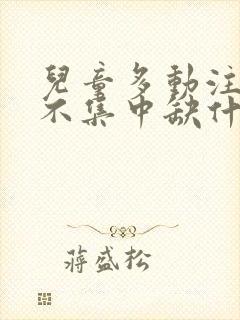 兒童多動注
不集中缺什
蔣盛松